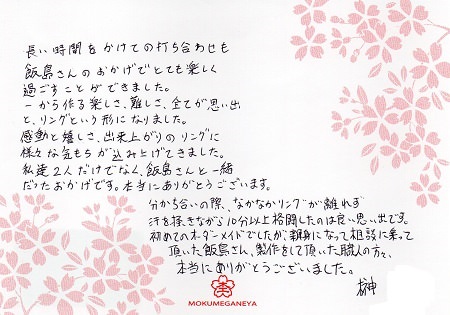 長い時間をかけての打ち合わせも
飯島さんのおかげでとても楽しく
過ごすことができました。
一から作る楽しさ、難しさ、全てが思い出
と、リングという形になりました。
感動と嬉しさ、出来上がりのリングに
様々な気もちが込み上げてきました。
私達2人だけでなく、飯島さんと一緒
だったおかげです。本当にありがとうございます。
分かち合いの際、なかなかリングが離れず
汗を掻きながら10分以上格闘したのは良い思い出です。
初めてのオーダーメイドでしたが、親身になって相談に乗って
頂いた飯島さん、製作をして頂いた職人の方々、
本当にありがとうございました。
榊
MOKUMEGANEYA